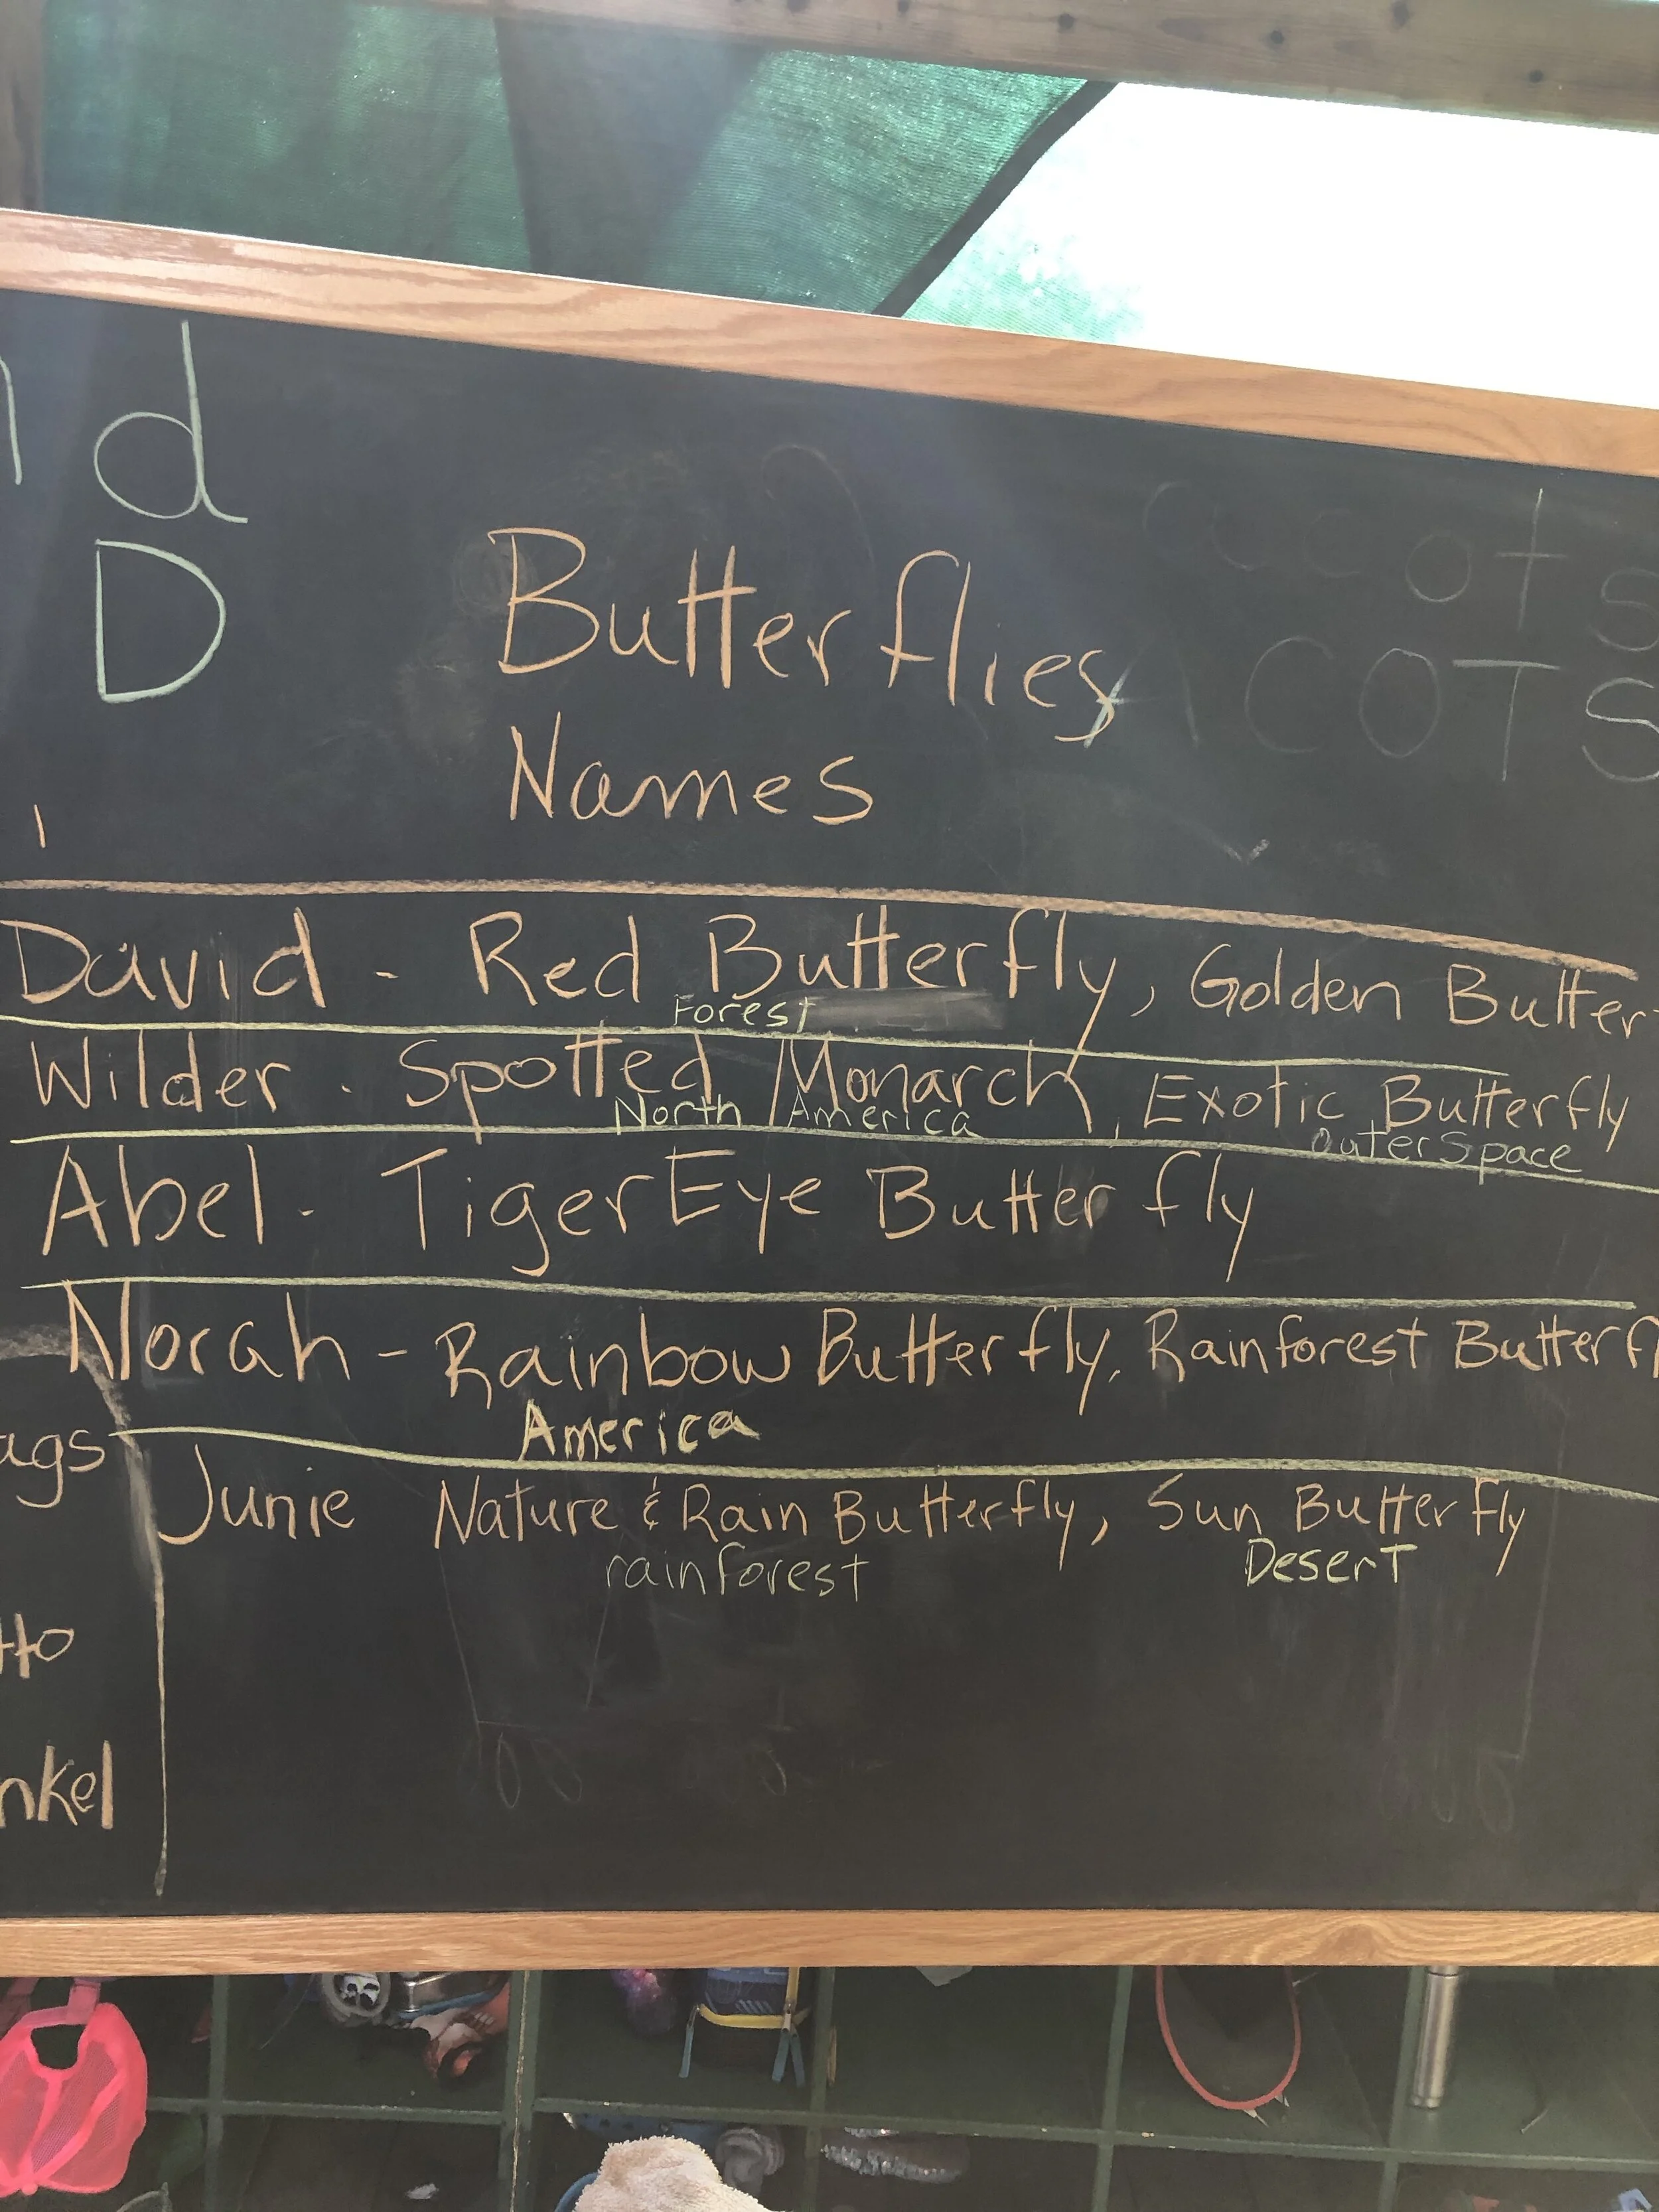 d
D
Butterflies
Names
cots
COTS
David - Red Butterfly, Golden Butter
Forest
Wilder - Spotted Monarch, Exotic Butterfly
North America
outerspace
Abel - Tiger Eye Butterfly
Norah - Rainbow Butterfly, Rainforest Butterf
America
ags
Junie Nature & Rain Butterfly, Sun Butterfly
rainforest
Desert
tto
nkel